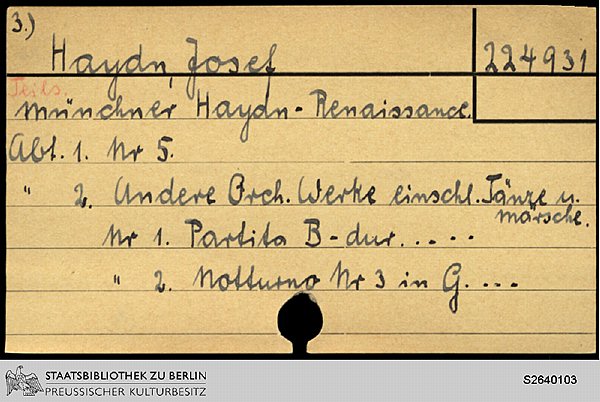 3.)
Haydn, Josef 224931
Teils.
Münchner Haydn-Renaissance.
Abt. 1. Nr 5.
" 2. Andere Orch. Werke einschl. Tänze u.
Märsche.
Nr 1. Partita B-dur.....
" 2. Notturno Nr 3 in G....
STAATSBIBLIOTHEK ZU BERLIN
PREUSSISCHER KULTURBESITZ
S2640103